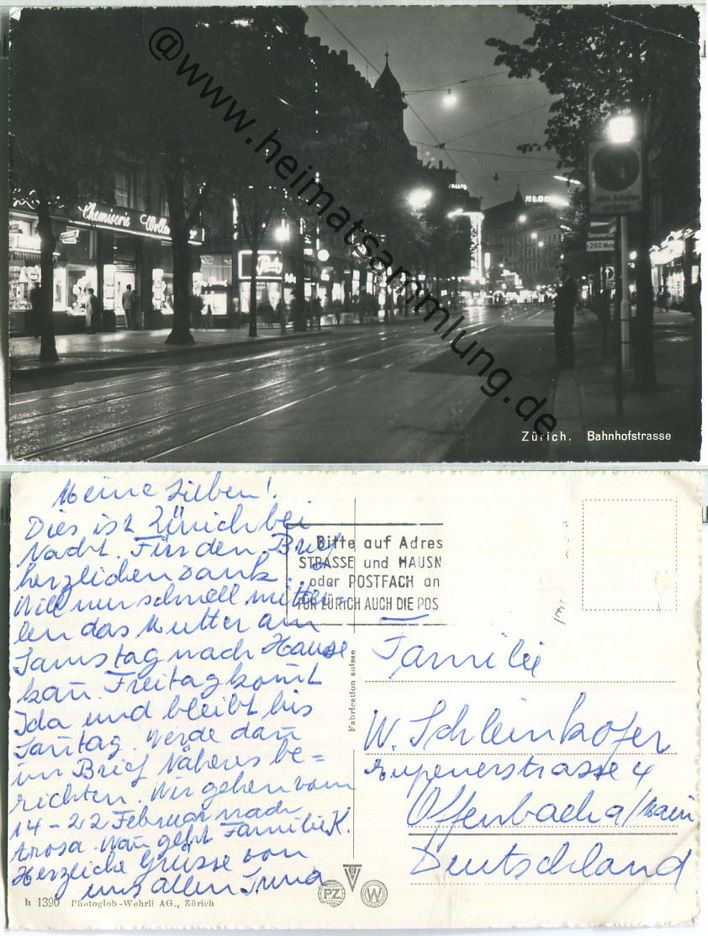 @www.heimatsammlung.de
Chemiserie
Bally
Zürich. Bahnhofstrasse
Meine Lieben!
Dies ist Zürich bei
Nacht. Für den Brief
herzlichen Dank.
Will nur schnell mittei-
len das Mutter am
Samstag nach Hause
kan. Freitag komt
Ida und bleibt bis
Santag. Werde dan
im Brief Näheres be=
richten. Wir gehen vom
14-22 Februar nach
Arosa. geht Familie K.
Herzliche Grüsse von
uns allen
h 1390 Photoglob-Wehrli AG., Zürich
Fabrication suisse
PZ
W
Bitte auf Adres
STRASSE und HAUSN
oder POSTFACH an
FÜR ZÜRICH AUCH DIE POS
Familie
W. Schleinkofer
Eupenerstrasse 4
Offenbach a/Main
Deutschland